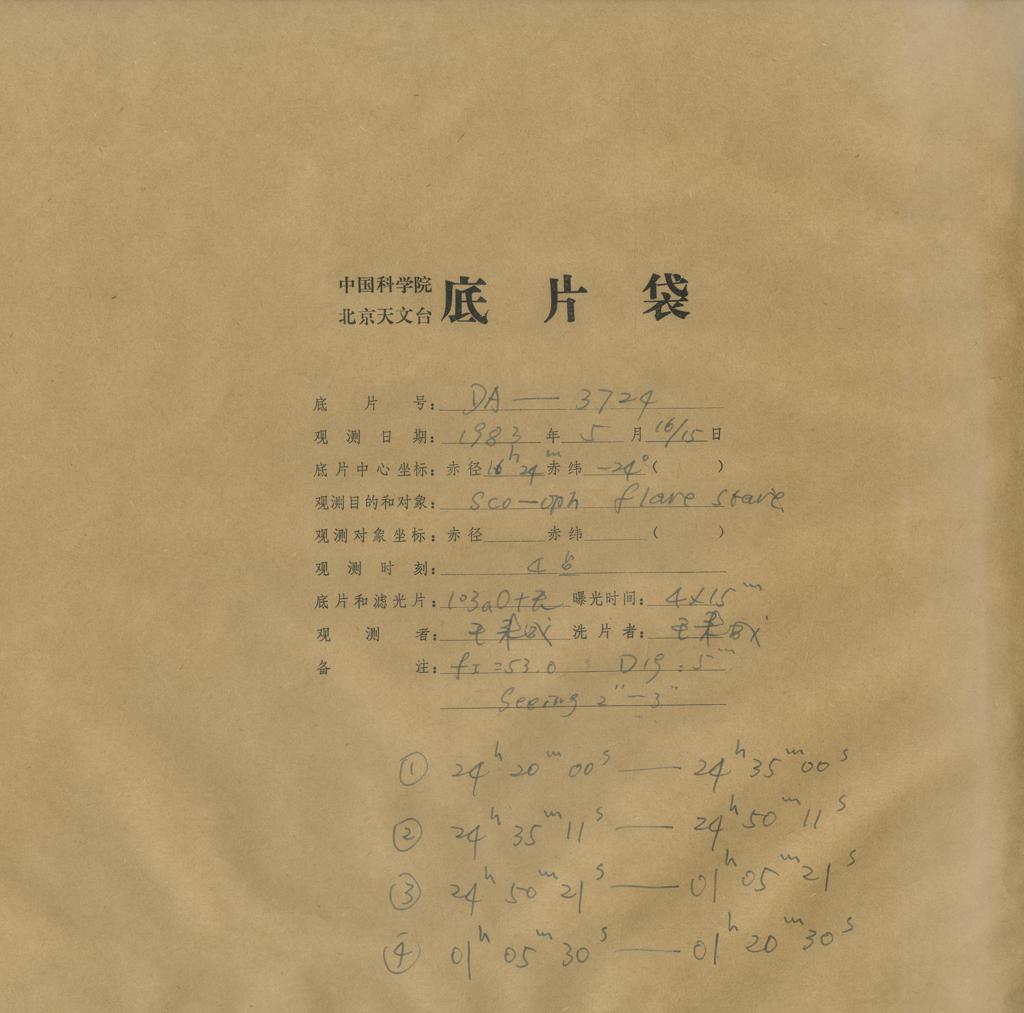 中国科学院
北京天文台
底片袋
底片号: DA — 3724
观测日期: 1983 年 5 月 16/15 日
底片中心坐标: 赤径 16ʰ 24ᵐ 赤纬 -24° ( )
观测目的和对象: Sco—oph flare stars
观测对象坐标: 赤径 赤纬 ( )
观测时刻: 4
底片和滤光片: 103aO+无 曝光时间: 4×15ᵐ
观测者: 王 洗片者: 王
备注: fI=53.0 D19: 5ᵐ
Seeing 2"—3"
① 24ʰ 20ᵐ 00ˢ — 24ʰ 35ᵐ 00ˢ
② 24ʰ 35ᵐ 11ˢ — 24ʰ 50ᵐ 11ˢ
③ 24ʰ 50ᵐ 21ˢ — 01ʰ 05ᵐ 21ˢ
④ 01ʰ 05ᵐ 30ˢ — 01ʰ 20ᵐ 30ˢ